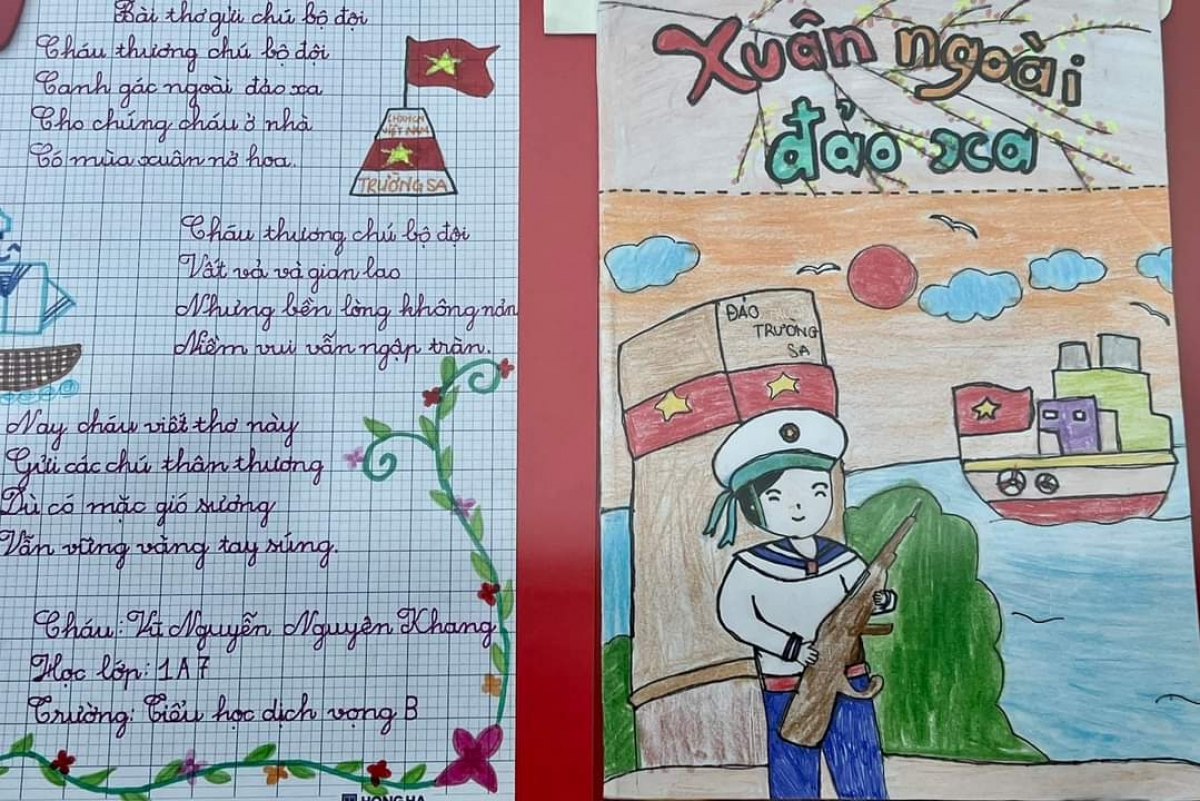 Bài thơ gửi chú bộ đội
Cháu thương chú bộ đội
Canh gác ngoài đảo xa
Cho chúng cháu ở nhà
Có mùa xuân nở hoa.
CHXHCN
VIỆT NAM
TRƯỜNG SA
Cháu thương chú bộ đội
Vất vả và gian lao
Nhưng bền lòng không nản
Niềm vui vẫn ngập tràn.
Nay cháu viết thơ này
Gửi các chú thân thương
Dù có mặc gió sương
Vẫn vững vàng tay súng.
Cháu: Vũ Nguyễn Nguyên Khang
Học lớp: 1A7
Trường: Tiểu học dịch vọng B
HONG HA
Xuân ngoài
đảo xa
ĐẢO
TRƯỜNG
SA